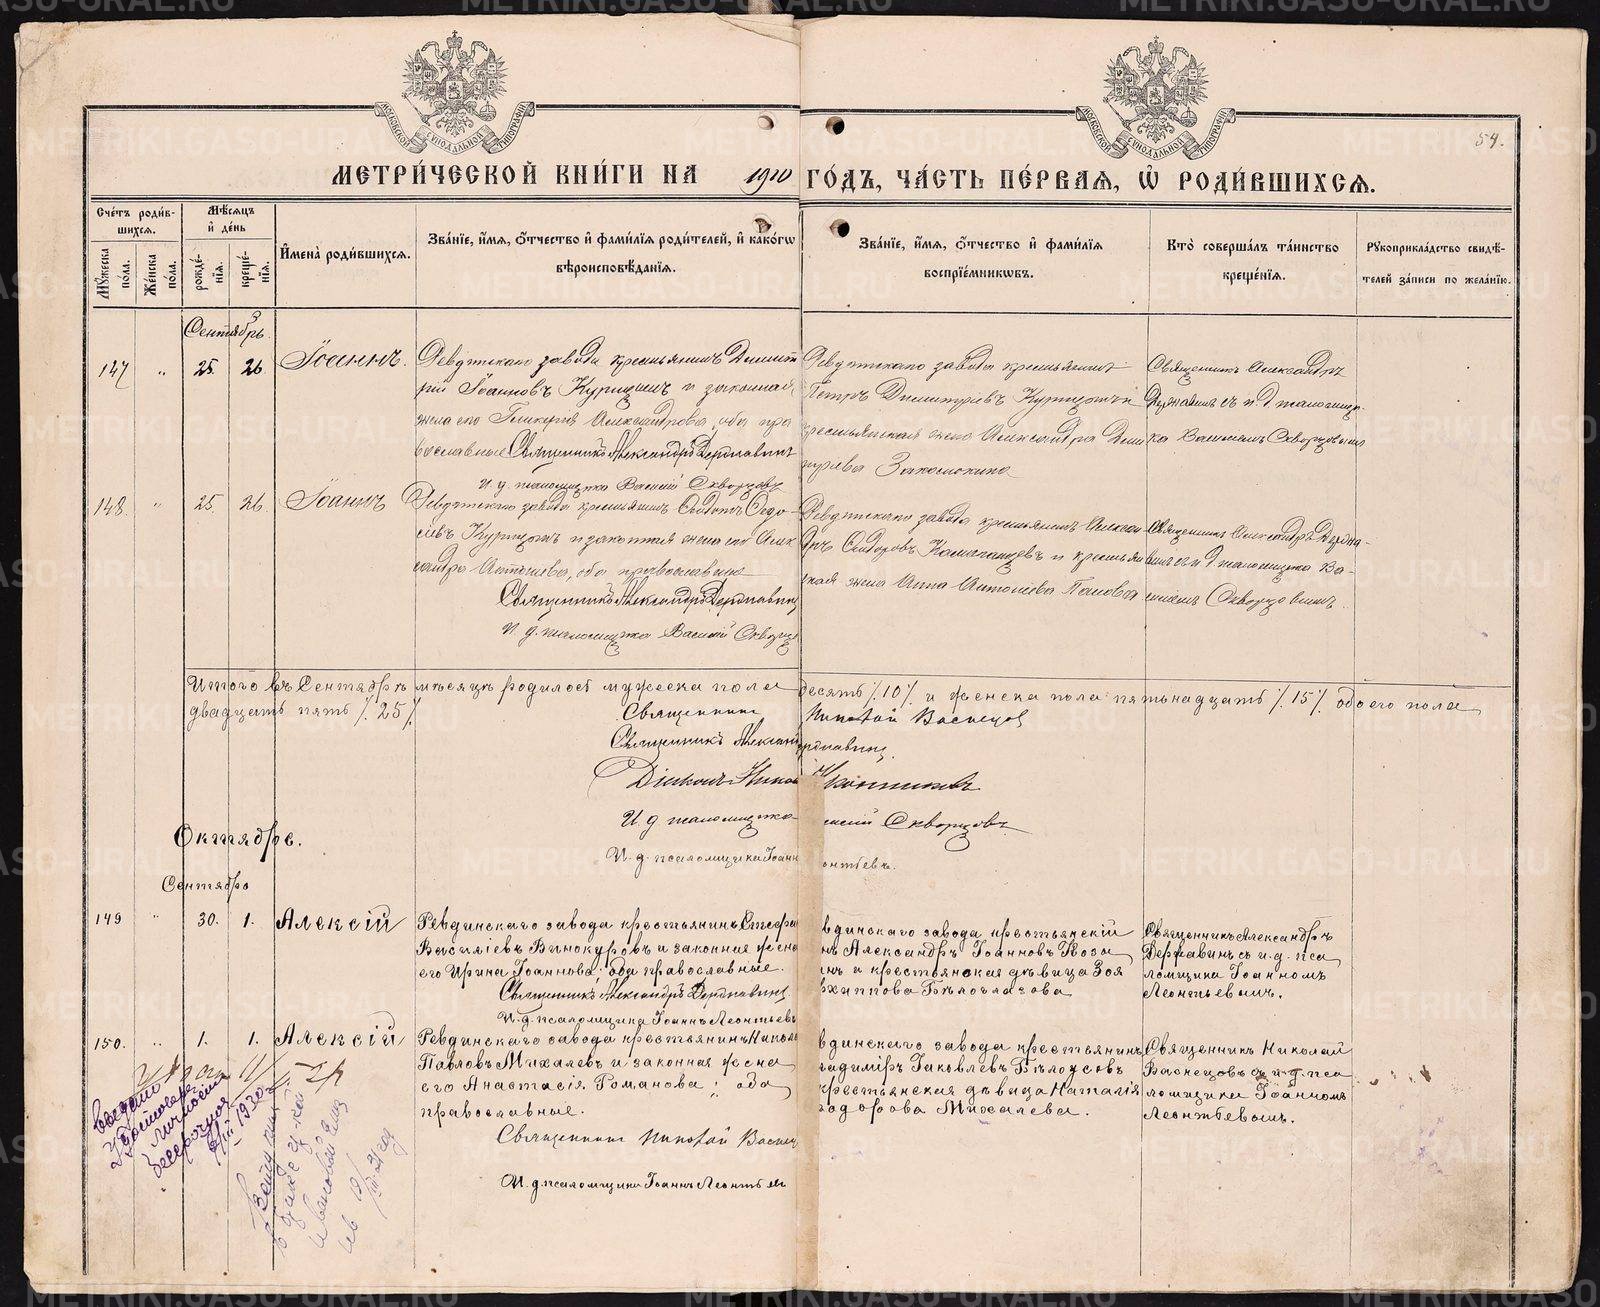 МЕТРИ́ЧЕСКОЙ КНИ́ГИ НА 1910 ГО́ДЪ, ЧА́СТЬ ПЕ́РВАѦ, Ѡ҆ РОДИ́ВШИХСѦ.
54.
Сче́тъ роди́в-
шихсѧ.
Мꙋ́жеска по́ла.
Же́нска по́ла.
Мѣ́сѧцъ и҆ де́нь
рожде́-
нїѧ.
креще́-
нїѧ.
И҆мена̀ роди́вшихсѧ.
Зва́нїе, и҆́мѧ, ѻ҆́тчество и҆ фами́лїѧ роди́телей, и҆ како́гѡ
вѣроисповѣ́данїѧ.
Зва́нїе, и҆́мѧ, ѻ҆́тчество и҆ фами́лїѧ
воспрїе́мникѡвъ.
Кто̀ соверша́лъ та́инство
креще́нїѧ.
Рꙋкоприкла́дство свидѣ́-
телей за́писи по жела́нїю.
Сентябрь
147 " 25. 26 Іоаннъ.
Ревдинскаго завода крестьянинъ Димит
рій Іоанновъ Курицынъ и законная
жена его Гликерія Александрова, оба пра
вославные Священникъ Александръ Державинъ
И. д. псаломщика Василій Скворцовъ
Ревдинскаго завода крестьянинъ
Петръ Димитріевъ Курицынъ и
крестьянская жена Александра Дими
тріева
Священникъ Александръ
Державинъ съ и. д. псаломщи-
ка Василіемъ Скворцовымъ
148. " 25. 26. Іоаннъ
Ревдинскаго завода крестьянинъ Ѳедо-
сіевъ Курицынъ и законная жена его Алек
сандра Антоніева, оба православные
Священникъ Александръ Державинъ
И. д. псаломщика Василій Скворцо
Ревдинскаго завода крестьянинъ Алексан
дръ Сидоровъ и крестьян
ская жена Анна Антоніева Попова
Священникъ Александръ Держа-
винъ съ и д псаломщика Ва-
силіемъ Скворцовымъ.
Итого въ Сентябрѣ мѣсяцѣ родилось мужеска пола десять /.10/. и женска пола пятьнадцать /.15/. обоего пола
двадцать пять /.25/.
Священникъ Николай Васнецовъ
Священникъ Александръ Державинъ.
Діаконъ Никол
И. д псаломщика Василій Скворцовъ
И. д. псаломщика Іоаннъ Леонтьевъ.
Октябрь.
Сентябрь
149 " 30. 1. Алексій
Ревдинскаго завода крестьянинъ Стефа
Василіевъ Винокуровъ и законная жена
его Ирина Іоаннова; оба православные.
Священникъ Александръ Державинъ.
И. д. псаломщика Іоаннъ Леонтьевъ
вдинскаго завода крестьянскій
нъ Александръ Іоанновъ Коза
инъ и крестьянская дѣвица Зоя
рхиппова Бѣлоглазова
Священникъ Александръ
Державинъ съ и. д. пса
ломщика Іоанномъ
Леонтьевымъ.
150. " 1. 1. Алексій
Ревдинскаго завода крестьянинъ Никола
Павловъ Михалевъ и законная жена
его Анастасія Романова; оба
православные.
Священникъ Николай Васнец
И. д. псаломщика Іоаннъ Леонтьев
вдинскаго завода крестьянинъ
ладиміръ Іаковлевъ Бѣлоусовъ
крестьянская дѣвица Наталія
одорова Михалева.
Священникъ Николай
Васнецовъ съ и. д. пса
ломщика Іоанномъ
Леонтьевымъ.
Выдано
Удостовере
личности
бессрочная
1930